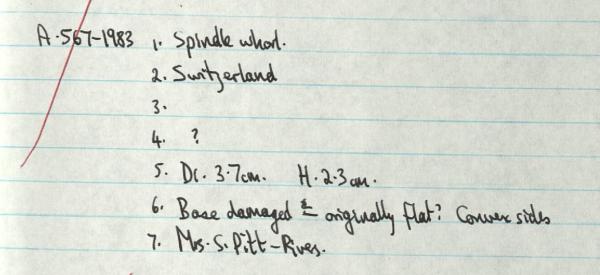 A.567-1983 1. Spindle whorl.
2. Switzerland
3.
4. ?
5. Di. 3.7cm. H. 2.3cm.
6. Base damaged & originally flat? Convex sides
7. Mrs. S. Pitt-Rivers.